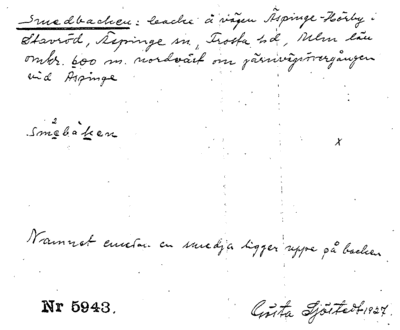 Smedbacken: backe å vägen Äspinge-Hörby i
Stavröd, Äspinge sn, Frosta hd, Mlm län
omkr. 600 m. nordväst om järnvägsövergången
vid Äspinge
småbáken
x
Namnet emedan en smedja ligger uppe på backen
Nr 5943.
Gösta Sjöstedt 1927